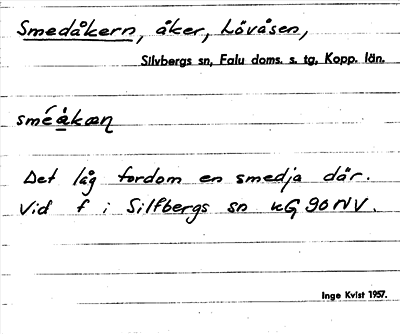 Smedåkern, åker, Lövåsen,
Silvbergs sn, Falu doms. s. tg, Kopp. län.
sméåkaɳ
Det låg fordom en smedja där.
Vid f i Silfbergs sn kG 90 NV.
Inge Kvist 1957.